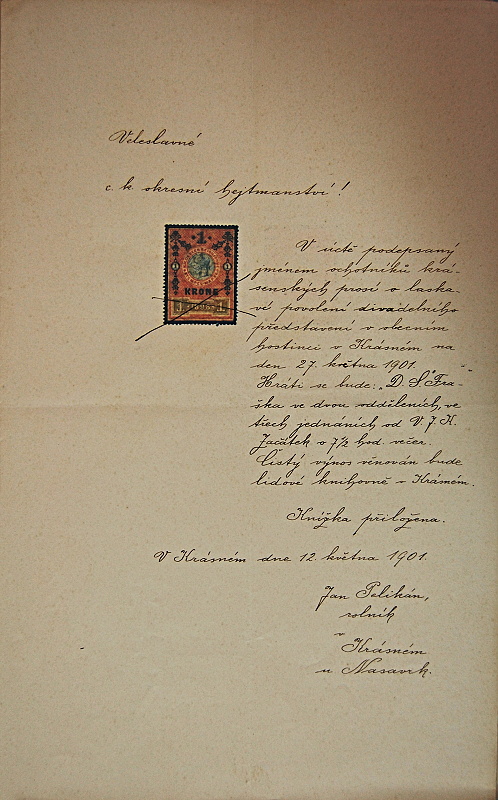 Veleslavné
c. k. okresní hejtmanství!
1
KRONE
V úctě podepsaný
jménem ochotníků krá-
senských prosí o laska-
vé povolení divadelního
představení v obecním
hostinci v Krásném na
den 27. května 1901.
Hráti se bude: „D. S." Fra-
ška ve dvou odděleních, ve
třech jednáních od V. J. K.
Začátek o 7½ hod. večer.
Čistý výnos věnován bude
lidové knihovně v Krásném.
Knížka přiložena.
V Krásném dne 12. května 1901.
Jan Pelikán,
rolník
v
Krásném
u Nasavrk.